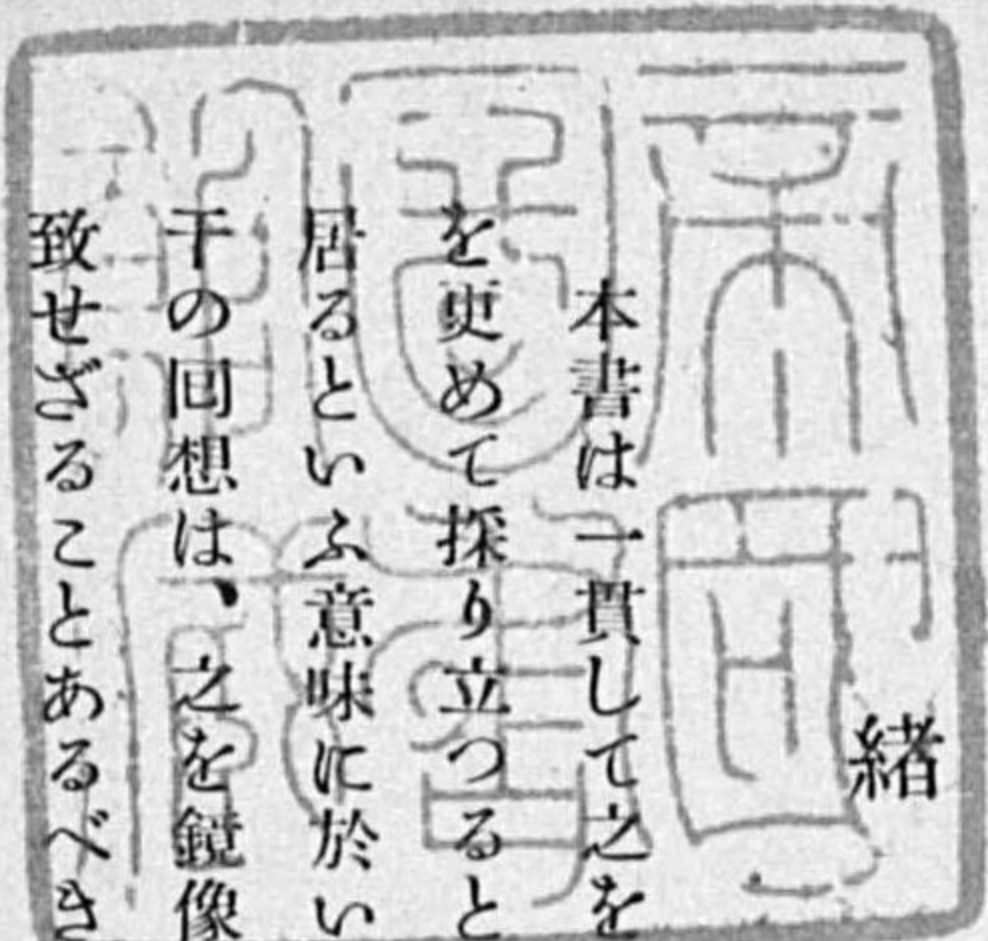 緒
本書は一貫して之を
を更めて探り立つると
居るといふ意味に於い
干の回想は、之を鏡像
致せざることあるべき